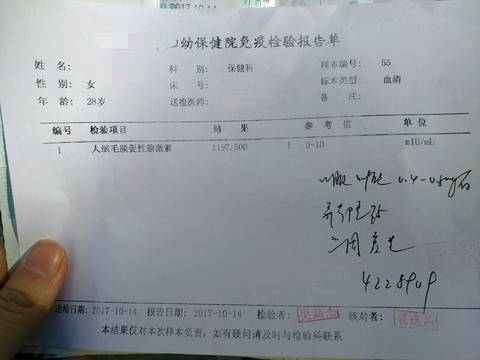 2017-10-14
幼保健院免疫检验报告单
姓 名: 科 别: 保健科 样本编号: 55
性 别: 女 床 号: 标本类型: 血清
年 龄: 28岁 送检医师: 备 注:
编号 检验项目 结 果 参 考 值 单 位
1 人绒毛膜促性腺激素 1197.500 ↑ 0-10 mIU/mL
叶酸 0.4-0.8mg
二周
4225909
送检日期:2017-10-14 报告日期:2017-10-14 检验者: 核对者:
本结果仅对本次样本负责,如有疑问请及时与检验科联系